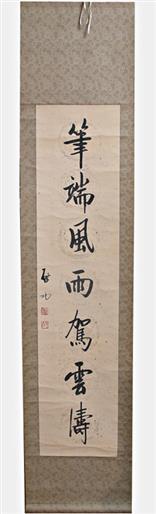 筆端風雨駕雲濤
啟功